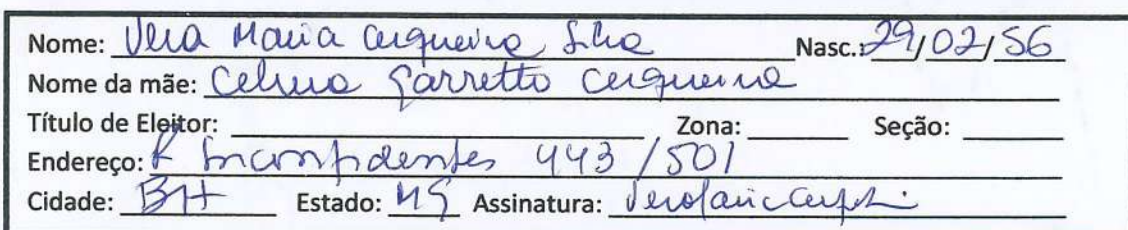 Nome: Vera Maria Cerqueira Silva Nasc.: 29/02/56
Nome da mãe: Celma Garretto Cerqueira
Título de Eleitor: Zona: Seção:
Endereço: R Inconfidentes 443/501
Cidade: BH Estado: MG Assinatura: